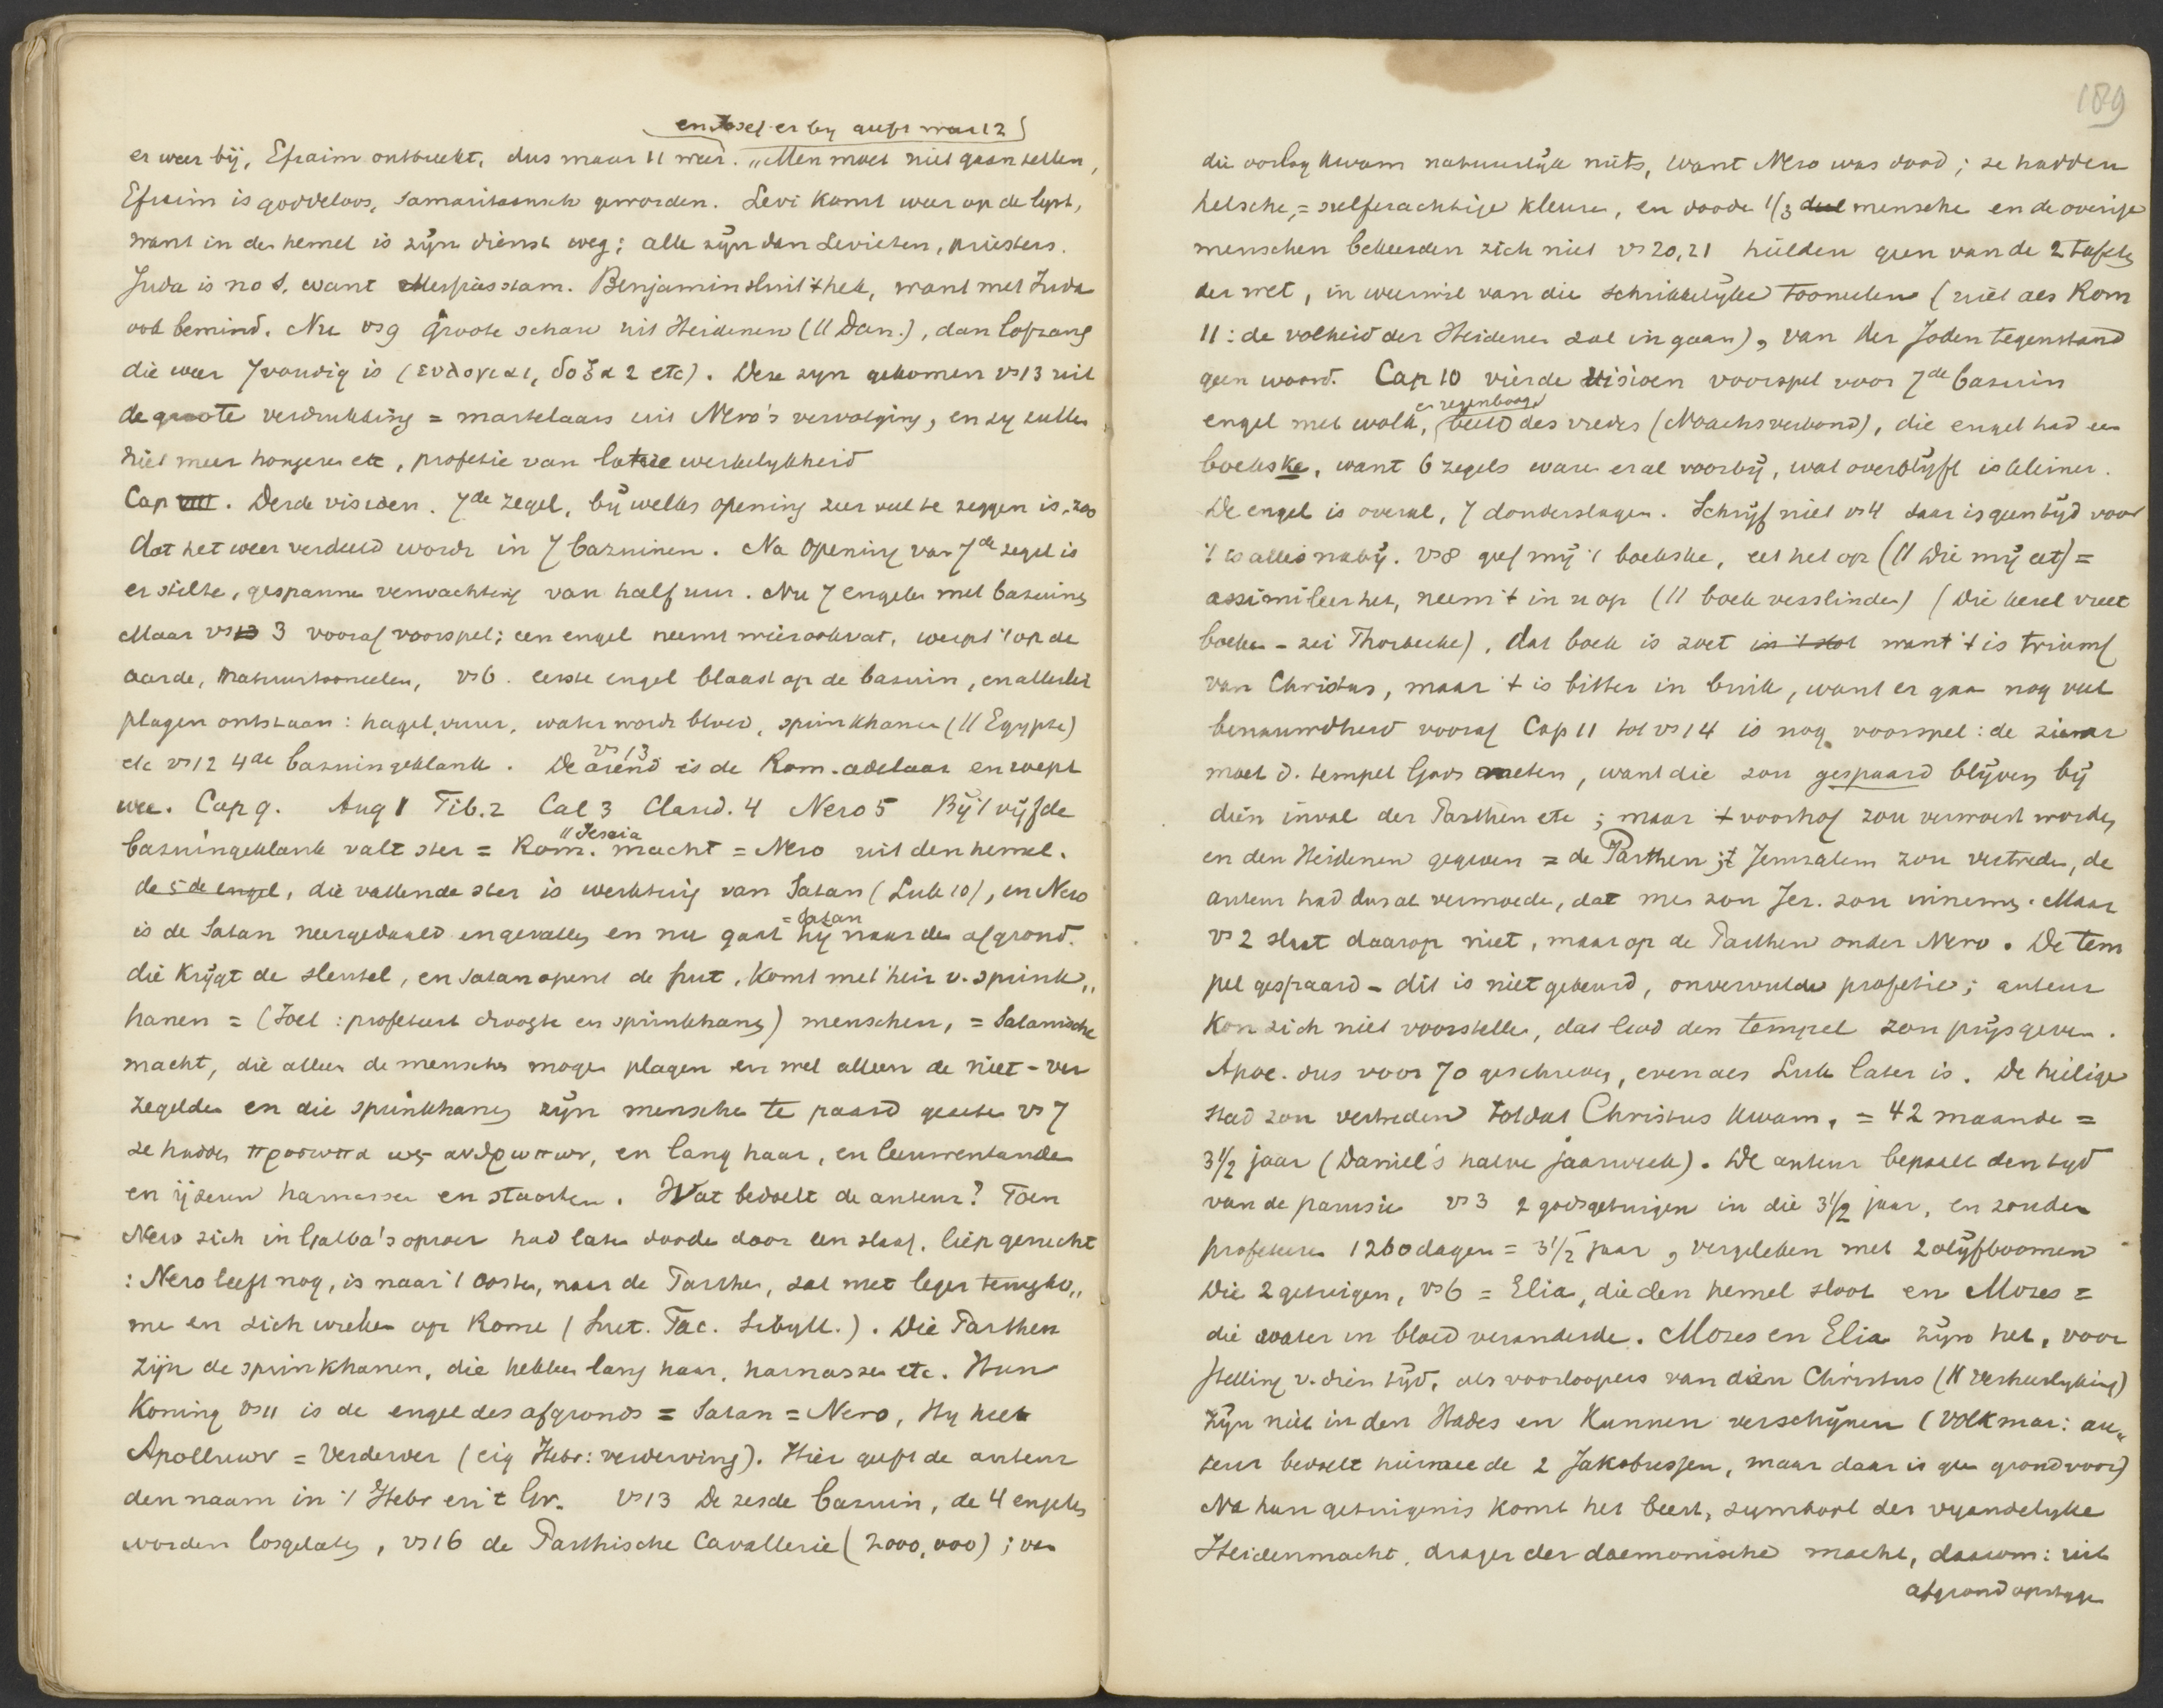 en Jozef er by geeft weer 12
er weer bij, Efraim ontbreekt, dus maar 11 weer. „Men moet niet gaan tellen,
Efraim is goddeloos, Samaritaansch geworden. Levi komt weer op de lyst,
want in den hemel is zÿn dienst weg; alle zÿn dan Levieten, priesters.
Juda is no 1, want Messiasstam. Benjamin sluit 't hek, want met Juda
ook bemind. Nu vs 9 groote schare uit Heidenen (11 Dan.), dan lofzang
die weer 7voudig is (ευλογια 1, δοξα 2 etc). Deze zyn gekomen vs 13 uit
de groote verdrukking = martelaars uit Nero's vervolging, en zy zullen
niet meer hongeren etc, profetie van latere werkelykheid
Cap VIII. Derde visioen. 7de zegel, bÿ welks opening zeer veel te zeggen is, zoo
dat het weer verdeeld wordt in 7 bazuinen. Na opening van 7de zegel is
er stilte, gespannen verwachting van half uur. Nu 7 engelen met bazuinen
Maar vs 3 vooraf voorspel; een engel neemt wierookvat, werpt 't op de
aarde, natuurtooneelen, vs 6. eerste engel blaast op de bazuin, en allerlei
plagen ontstaan: hagel, vuur, water wordt bloed, sprinkhanen (11 Egypte)
etc vs 12 4de bazuingeklank. De arend vs 13 is de Rom. adelaar en roept
wee. Cap 9. Aug 1 Tib. 2 Cal 3 Claud. 4 Nero 5 Bÿ 't vÿfde
bazuingeklank valt ster = Rom. macht = Nero uit den hemel. 11 Jesaia
de 5de engel, die vallende ster is werktuig van Satan (Luk 10), in Nero
is de Satan neergedaald en gevallen en nu gaat hÿ = Satan naar den afgrond.
die krÿgt de sleutel, en Satan opent de put, komt met heir v. sprink„
hanen = (Joel: profeteert droogte en sprinkhanen) menschen, = Satanische
macht, die alleen de menschen mogen plagen en wel alleen de niet-ver
zegelden en die sprinkhanen zÿn menschen te paard gezeten vs 7
ze hadden προσωπα ως ανθρωπων, en lang haar, en leeuwentanden
en ÿzeren harnassen en staarten. Wat bedoelt de auteur? Toen
Nero zich in Galba's oproer had laten dooden door een slaaf, liep gerucht
: Nero leeft nog, is naar 't Oosten, naar de Parthen, zal met leger terugko„
men en zich wreken op Rome (Suet. Tac. Sibyll.). Die Parthen
zÿn de sprinkhanen, die hebben lang haar, harnassen etc. Hun
Koning vs 11 is de engel des afgronds = Satan = Nero, Hy heet
Apolluwν = Verderver (eig Hebr: verderving). Hier geeft de auteur
den naam in 't Hebr en 't Gr. vs 13 De zesde bazuin, de 4 engelen
worden losgelaten, vs 16 de Parthische Cavallerie (2000,000); van
189
die oorlog kwam natuurlÿk niets, want Nero was dood; ze hadden
helsche, = zwelferachtige kleuren, en doode 1/3 deel menschen en de overige
menschen bekeerden zich niet vs 20, 21 hielden geen van de 2 tafels
der wet, in weerwil van die schrikkelÿke tooneelen (niet als Rom
11: de volheid der Heidenen zal in gaan), van der Joden tegenstand
geen woord. Cap 10 vierde visioen voorspel voor 7de bazuin
engel met wolk, en regenboog beeld des vredes (Noachs verbond), die engel had een
boekske, want 6 zegels waren er al voorbÿ, wat overblÿft is kleiner.
De engel is overal, 7 donderslagen. Schrÿf niet vs 4 daar is geen tÿd voor
't is alles nabÿ. vs 8 geef mÿ 't boekske, eet het op (11 Die mÿ eet) =
assimileer het, neem 't in u op (11 boek verslinden) (Die kerel vreet
boeken - zei Thorbecke), dat boek is zoet in 't slot want 't is triumf
van Christus, maar 't is bitter in buik, want er gaan nog veel
benauwdheid vooraf Cap 11 tot vs 14 is nog voorspel: de ziener
moet d. tempel Gods meten, want die zou gespaard blÿven bÿ
dien inval der Parthen etc; maar 't voorhof zou verwoest worden
en den Heidenen gegeven = de Parthen; 't Jeruzalem zou vertreden, de
auteur had dus al vermoeden, dat men zou Jer. zou innemen. Maar
vs 2 slaat daarop niet, maar op de Parthen onder Nero. De tem
pel gespaard - dit is niet gebeurd, onvervulde profetie; auteur
kon zich niet voorstellen, dat God den tempel zou prÿs geven.
Apoc. dus voor 70 geschreven, even als Luk later is. De heilige
stad zou vertreden totdat Christus kwam, = 42 maanden =
3 1/2 jaar (Daniel's halve jaarweek). De auteur bepaalt den tyd
van de parusie vs 3 2 godsgetuigen in die 3 1/2 jaar, en zouden
profeteren 1260 dagen = 3 1/2 jaar, vergeleken met 2 olÿfboomen
Die 2 getuigen, vs 6 = Elia, die den hemel sloot en Mozes =
die water in bloed veranderde. Mozes en Elia zÿn het, voor
stelling v. dien tÿd, als voorloopers van dien Christus (11 Verheerlyking)
zÿn niet in den Hades en kunnen verschÿnen (Volkmar: au„
teur bedoelt hiermee de 2 Jakobussen, maar daar is geen grond voor)
Na hun getuigenis komt het beest, symbool der vyandelyke
Heidenmacht, drager der daemonische macht, daarom: uit
afgrond opstyge